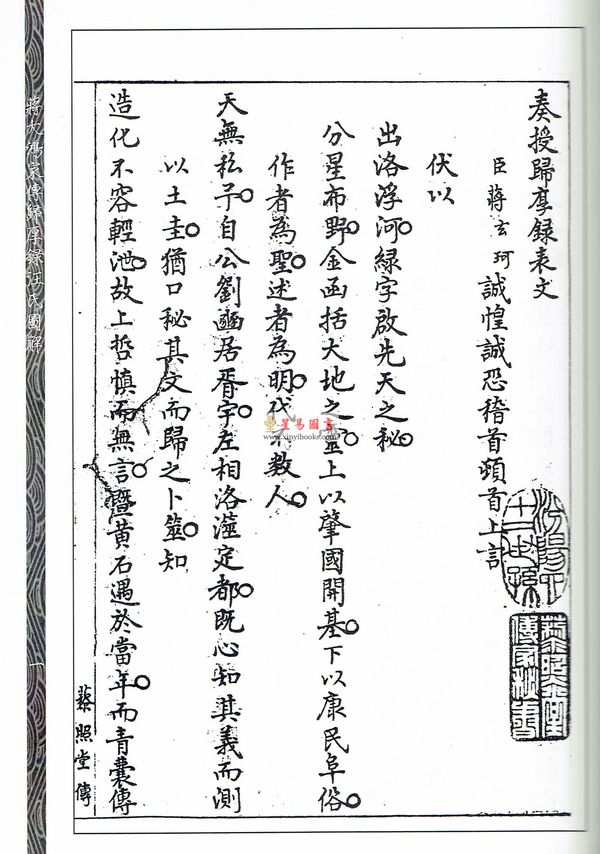 奏授歸厚錄表文
臣蔣玄珂誠惶誠恐稽首頓首上言
伏以
出洛浮河綠字啟先天之秘
分星布野金函括大地之靈上以肇國開基下以康民阜俗
作者為聖述者為明代不數人
天無私予自公劉豳居胥宇左相洛瀍定都既心知其義而測
以土圭猶口秘其文而歸之卜筮知
造化不容輕泄故上哲慎而無言暨黃石遇於當年而青囊傳
蔡照堂傳
蔣大鴻家傳歸厚錄汪氏圖解
一
星易圖書
www.xinyibooks.com